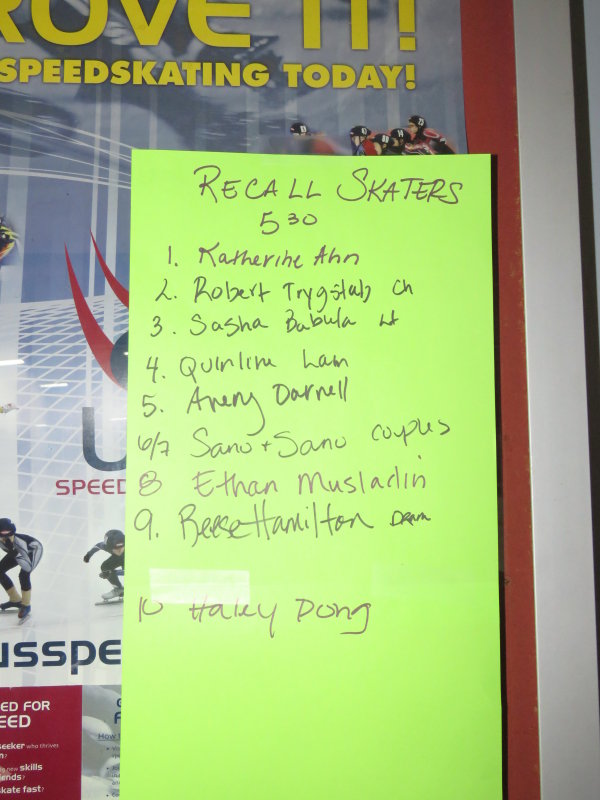 ROVE IT!
SPEEDSKATING TODAY!
RECALL SKATERS
530
1. Katherine Ahn
2. Robert Trygstab Ch
3. Sasha Babula Lt
4. Quinline Lam
5. Avery Darnell
6/7 Sano + Sano couples
8 Ethan Musladin
9. Reese Hamilton Dram
10 Haley Dong
U
SPEED
usspe
ED FOR
EED
seeker who thrives
n?
ng new skills
ends?
skate fast?
How